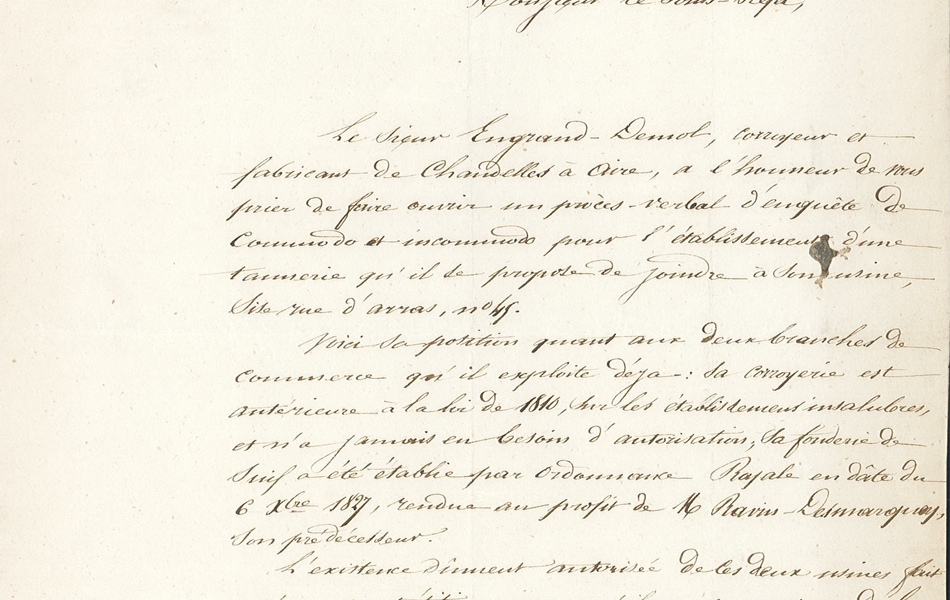 Monsieur le Sous-Préfet,
Le Sieur Engrand-Demol, corroyeur et
fabricant de Chandelles à Aire, a l'honneur de vous
prier de faire ouvrir un procès-verbal d'enquête de
Commodo et incommodo pour l'établissement d'une
tannerie qu'il se propose de joindre à Son usine,
Sise rue d'arras, no 45.
Voici Sa position quant aux deux branches de
commerce qu'il exploite déja : Sa corroyerie est
antérieure à la loi de 1810, Sur les établissement insalubres,
et n'a jamais eu besoin d'autorisation ; Sa fonderie de
Suif a été établie par Ordonnance Royale en dâte du
6 Xbre 1827, rendue au profit de M Ravin-Desmarquoy,
Son prédécesseur.
L'existence dûment autorisée de ces deux usines fait